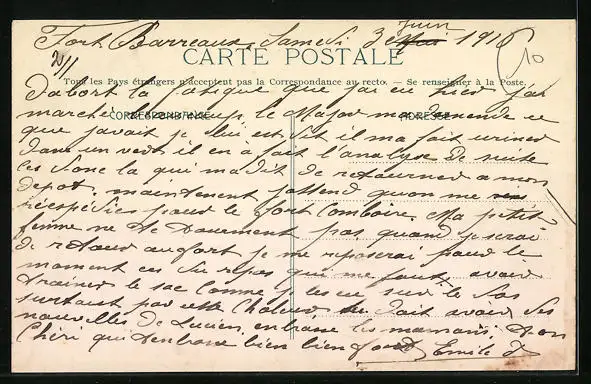 Fort Barreaux, Samedi 3 Juin 1916
2/1
10
CARTE POSTALE
Tous les Pays étrangers n'acceptent pas la Correspondance au recto. — Se renseigner à la Poste.
CORRESPONDANCE
ADRESSE
D'abort la fatigue que j'ai eu hier j'ai
marché beaucoup le Major me demende ce
que j'avait je lui est dit il ma fait uriner
dans un verre il en à fait l'analyse De suite
ces Sone la qui ma dit de retourner a mon
depot, maintenent j'attend quon me
réespédies pour le fort Comboire. Ma petite
femme ne te tourment pas quand je serai
de retour au fort je me reposerai pour le
moment ces du repos qui me faut avoir
trainer le sac comme je les eu sur le dos
surtout par cette Chaleur tu doit avoir des
nouvelles De Lucien, enbrasse les mamans, Ton
Chéri qui t'enbrasse bien bien fort Emile